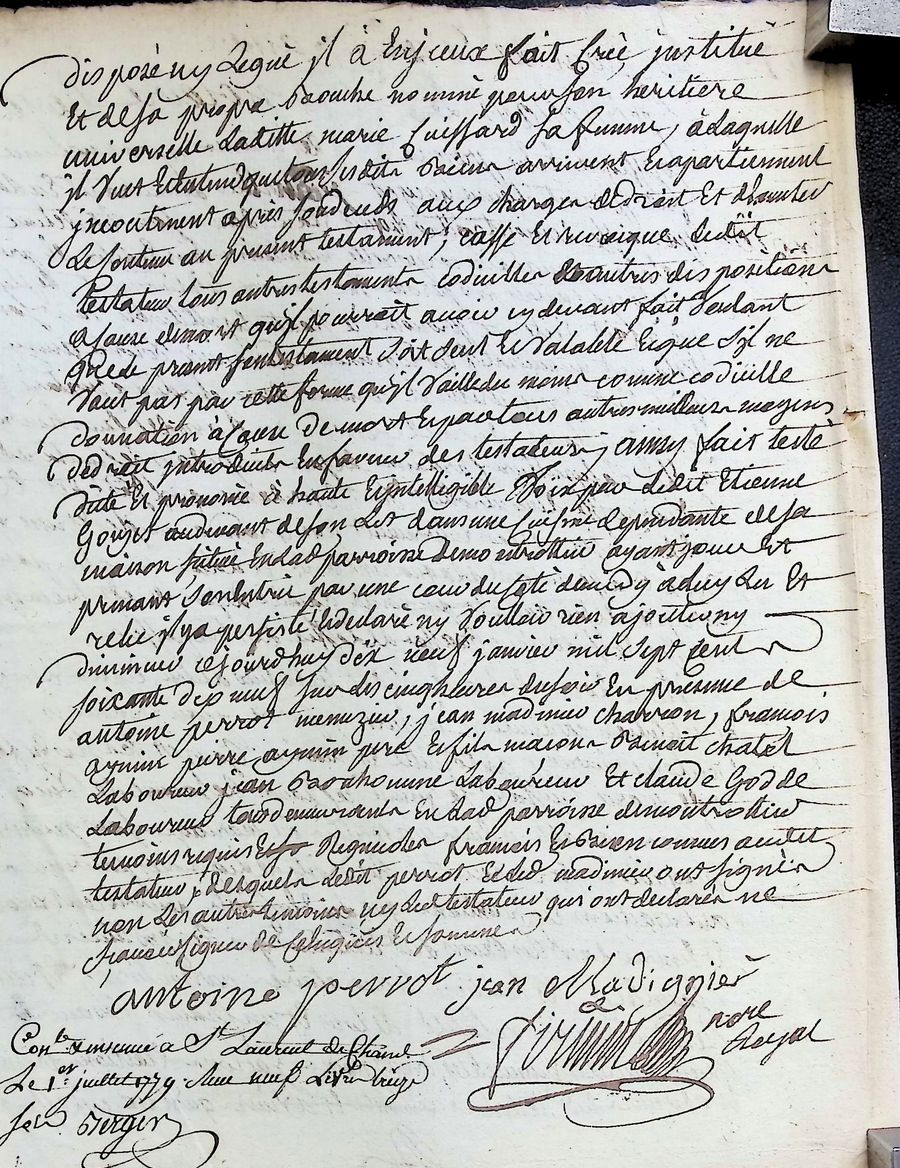 disposé ny legué il à Enjceux fait Creé, jnstitué
Et de sa propre Bouche nommé pour son heritiere
universelle Laditte marie Cuissard sa femme, à Laquelle
jl Veut Et Entend que tous sesdits Biens arrivent Et apartiennent
jncontinent après son deceds aux charges de droit Et d'Executer
Le Contenu au present testament; Casse Et revoque Ledit
testateur tous autres testaments codicilles Et autres dispositions
a Cause de mort qu'jl pourroit avoir cy devant fait Voulant
que le present son testament soit seul Et Valable Et que s'jl ne
Vaut pas par cette forme qu'jl Vaille du moins comme codicille
donnation a Cause de mort Et par tous autres meilleurs moyens
de droit jntroduits En faveur des testateurs, ainsy fait testé
dicté Et prononcé à haute Et jntelligible Voix par Ledit Etienne
Goujet au devant de son Lit dans une Cuisine dependante de sa
maison située En lad. parroisse de montrottier ayant jour Et
prenant son Entrée par une cour du Coté de midy à Luy Lu Et
relu jl y a persisté Et declaré n'y Vouloir rien ajouter ny
diminuer Ce jourd'huy dix neuf janvier mil sept Cent
soixante dix neuf sur les cinq heures du soir En presence de
antoine perrot menuzier, jean madinier charron, francois
aymin pierre aymin pere Et fils macons Benoit chatel
Laboureur jean Bonhomme Laboureur Et claude Godde
Laboureur tous demeurants En lad. parroisse de montrottier
temoins requis Et Regnicoles francois Et Bien connus audit
testateur, desquels Ledit perrot Et Led. madinier ont signés
non Les autres temoins ny Led. testateur qui ont declarés ne
scavoir signer de Ce Enquis Et sommés
antoine perrot jean Madignier
nore
Royal
Conlé & insinué à St Laurent de Chamel
Le 1er juillet 1779 Reçu neuf Livres treize
sols Berger